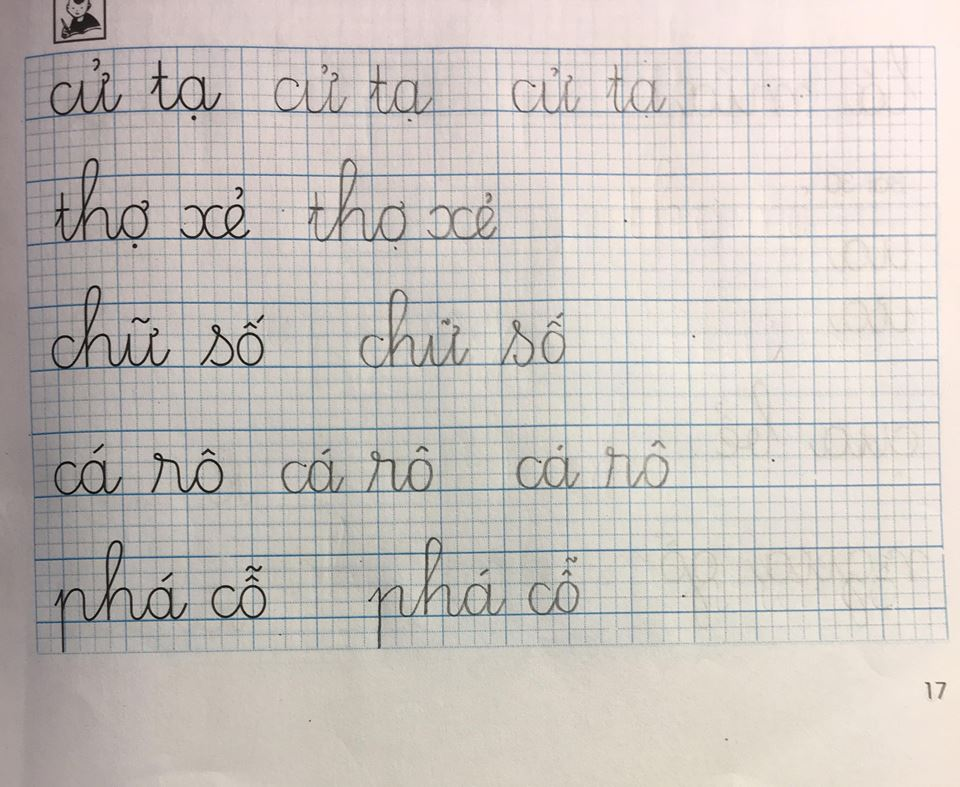 cử tạ cử tạ cử tạ
thợ xẻ thợ xẻ
chữ số chữ số
cá rô cá rô cá rô
phá cỗ phá cỗ
17